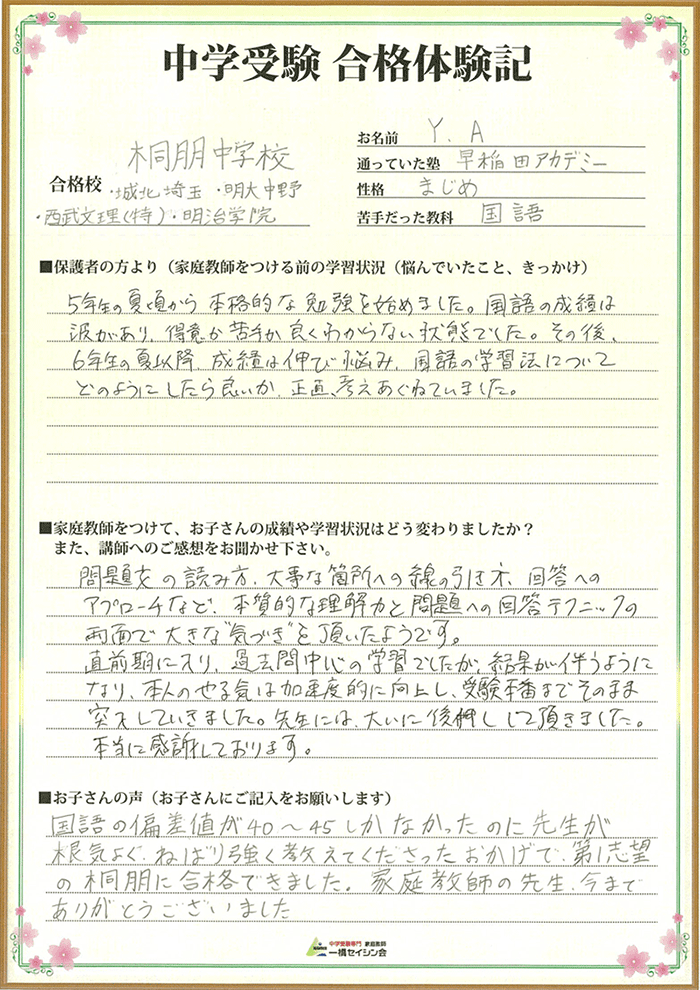 中学受験 合格体験記
お名前 Y.A
通っていた塾 早稲田アカデミー
性格 まじめ
苦手だった教科 国語
合格校 桐朋中学校
・城北埼玉 ・明大中野
・西武文理(特)・明治学院
■保護者の方より（家庭教師をつける前の学習状況（悩んでいたこと、きっかけ）
5年生の夏頃から本格的な勉強を始めました。国語の成績は
波があり、得意か苦手か良くわからない状態でした。その後、
6年生の夏以降、成績は伸び悩み、国語の学習法について
どのようにしたら良いか、正直、考えあぐねていました。
■家庭教師をつけて、お子さんの成績や学習状況はどう変わりましたか？
また、講師へのご感想をお聞かせ下さい。
問題文の読み方、大事な箇所への線の引き方、回答への
アプローチなど、本質的な理解力と問題への回答テクニックの
両面で大きな"気づき"を頂いたようです。
直前期に入り、過去問中心の学習でしたが、結果が伴うように
なり、本人のやる気は加速度的に向上し、受験本番までそのまま
突入していきました。先生には、大いに後押しして頂きました。
本当に感謝しております。
■お子さんの声（お子さんにご記入をお願いします）
国語の偏差値が40～45しかなかったのに先生が
根気よく、ねばり強く教えてくださったおかげで、第1志望
の桐朋に合格できました。家庭教師の先生、今まで
ありがとうございました
中学受験専門 家庭教師
一橋セイシン会